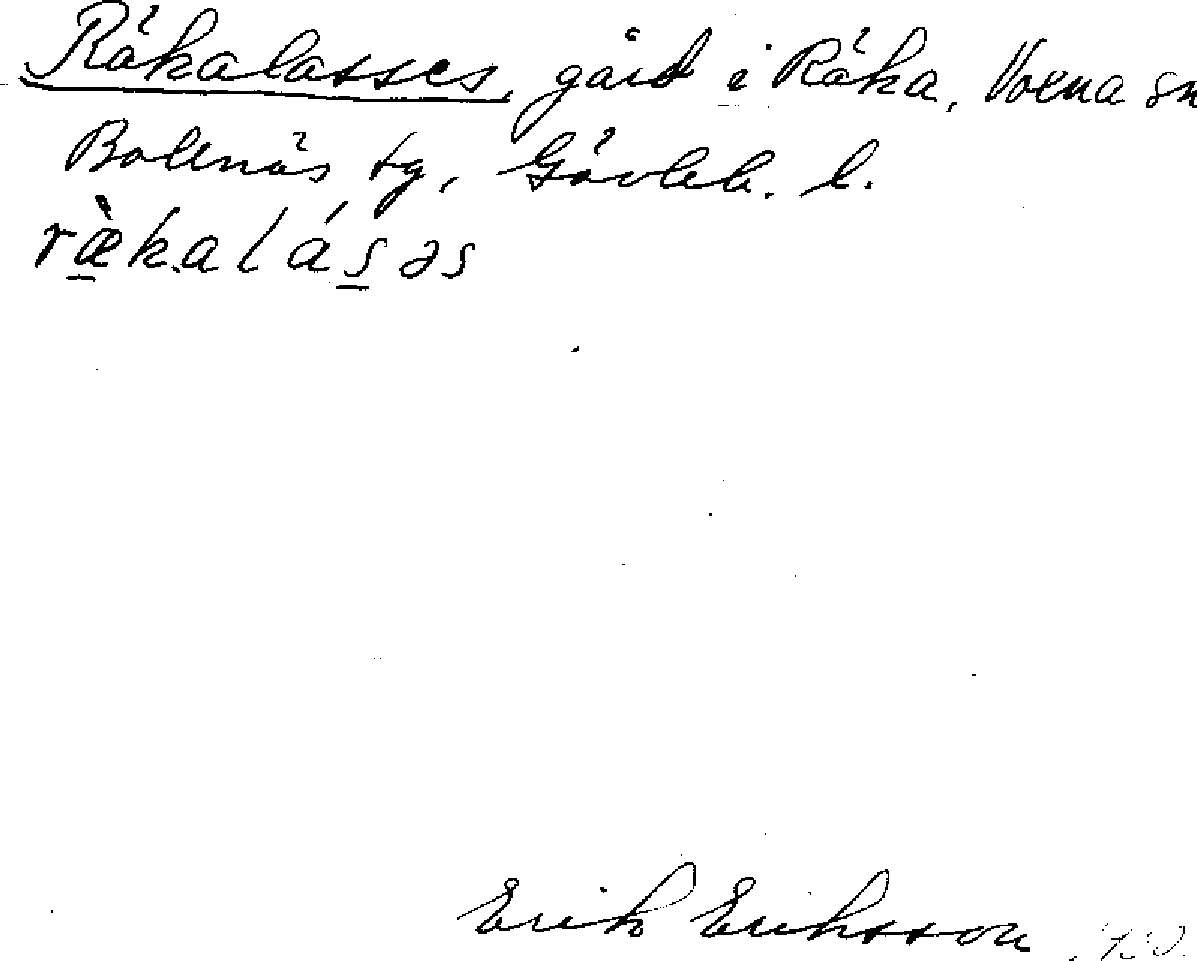 Räkalasses, gård i Räka, Voxna sn
Bollnäs tg, Gävleb. l.
ræ̀kalásəs
Erik Eriksson